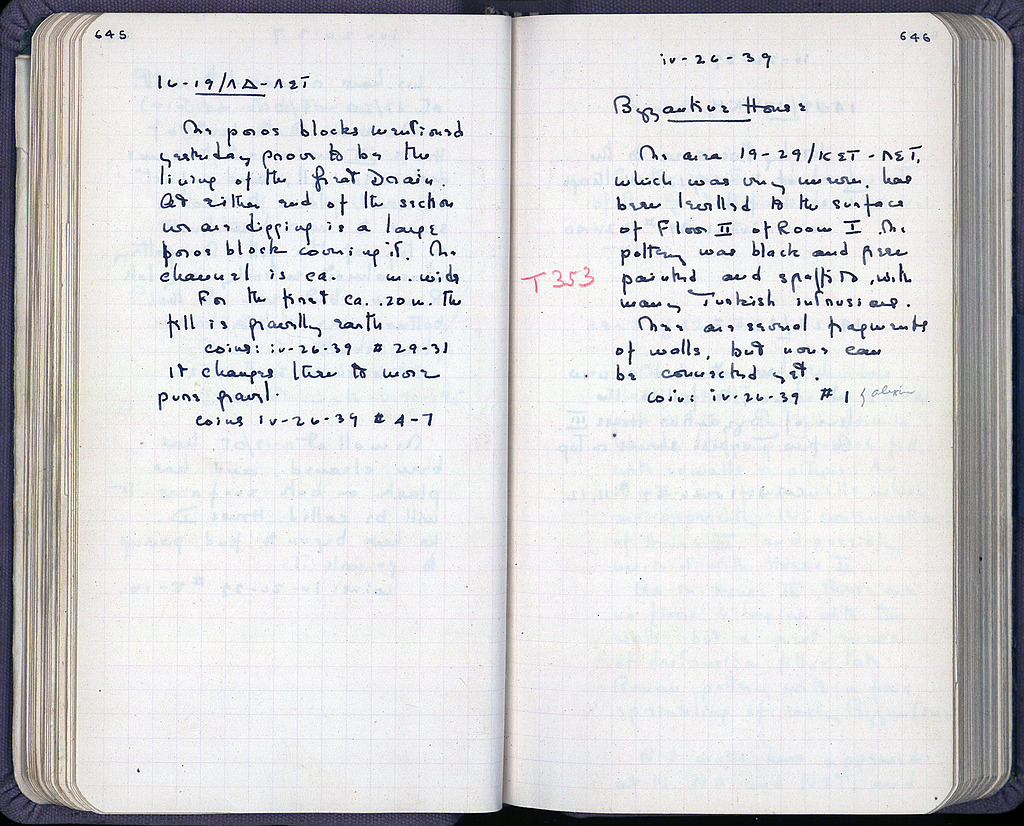 645
16-19/ΛΔ-ΛΣΤ
The poros blocks mentioned
yesterday prove to be the
lining of the first Drain.
At either end of the section
we are digging is a large
poros block covering it. The
channel is ca. m. wide
For the first ca. .20 m. the
fill is gravelly earth
coins: iv-26-39 # 29-31
it changes then to more
pure gravel.
coins iv-26-39 # 4-7
646
iv-26-39
Byzantine House
The area 19-29/ΚΣΤ-ΛΣΤ,
which was very uneven, has
been levelled to the surface
of Floor II of Room I. The
pottery was black and green
painted and sgraffito, with
many Turkish intrusions.
T353
There are several fragments
of walls, but none can
be connected yet.
coin: iv-26-39 # 1